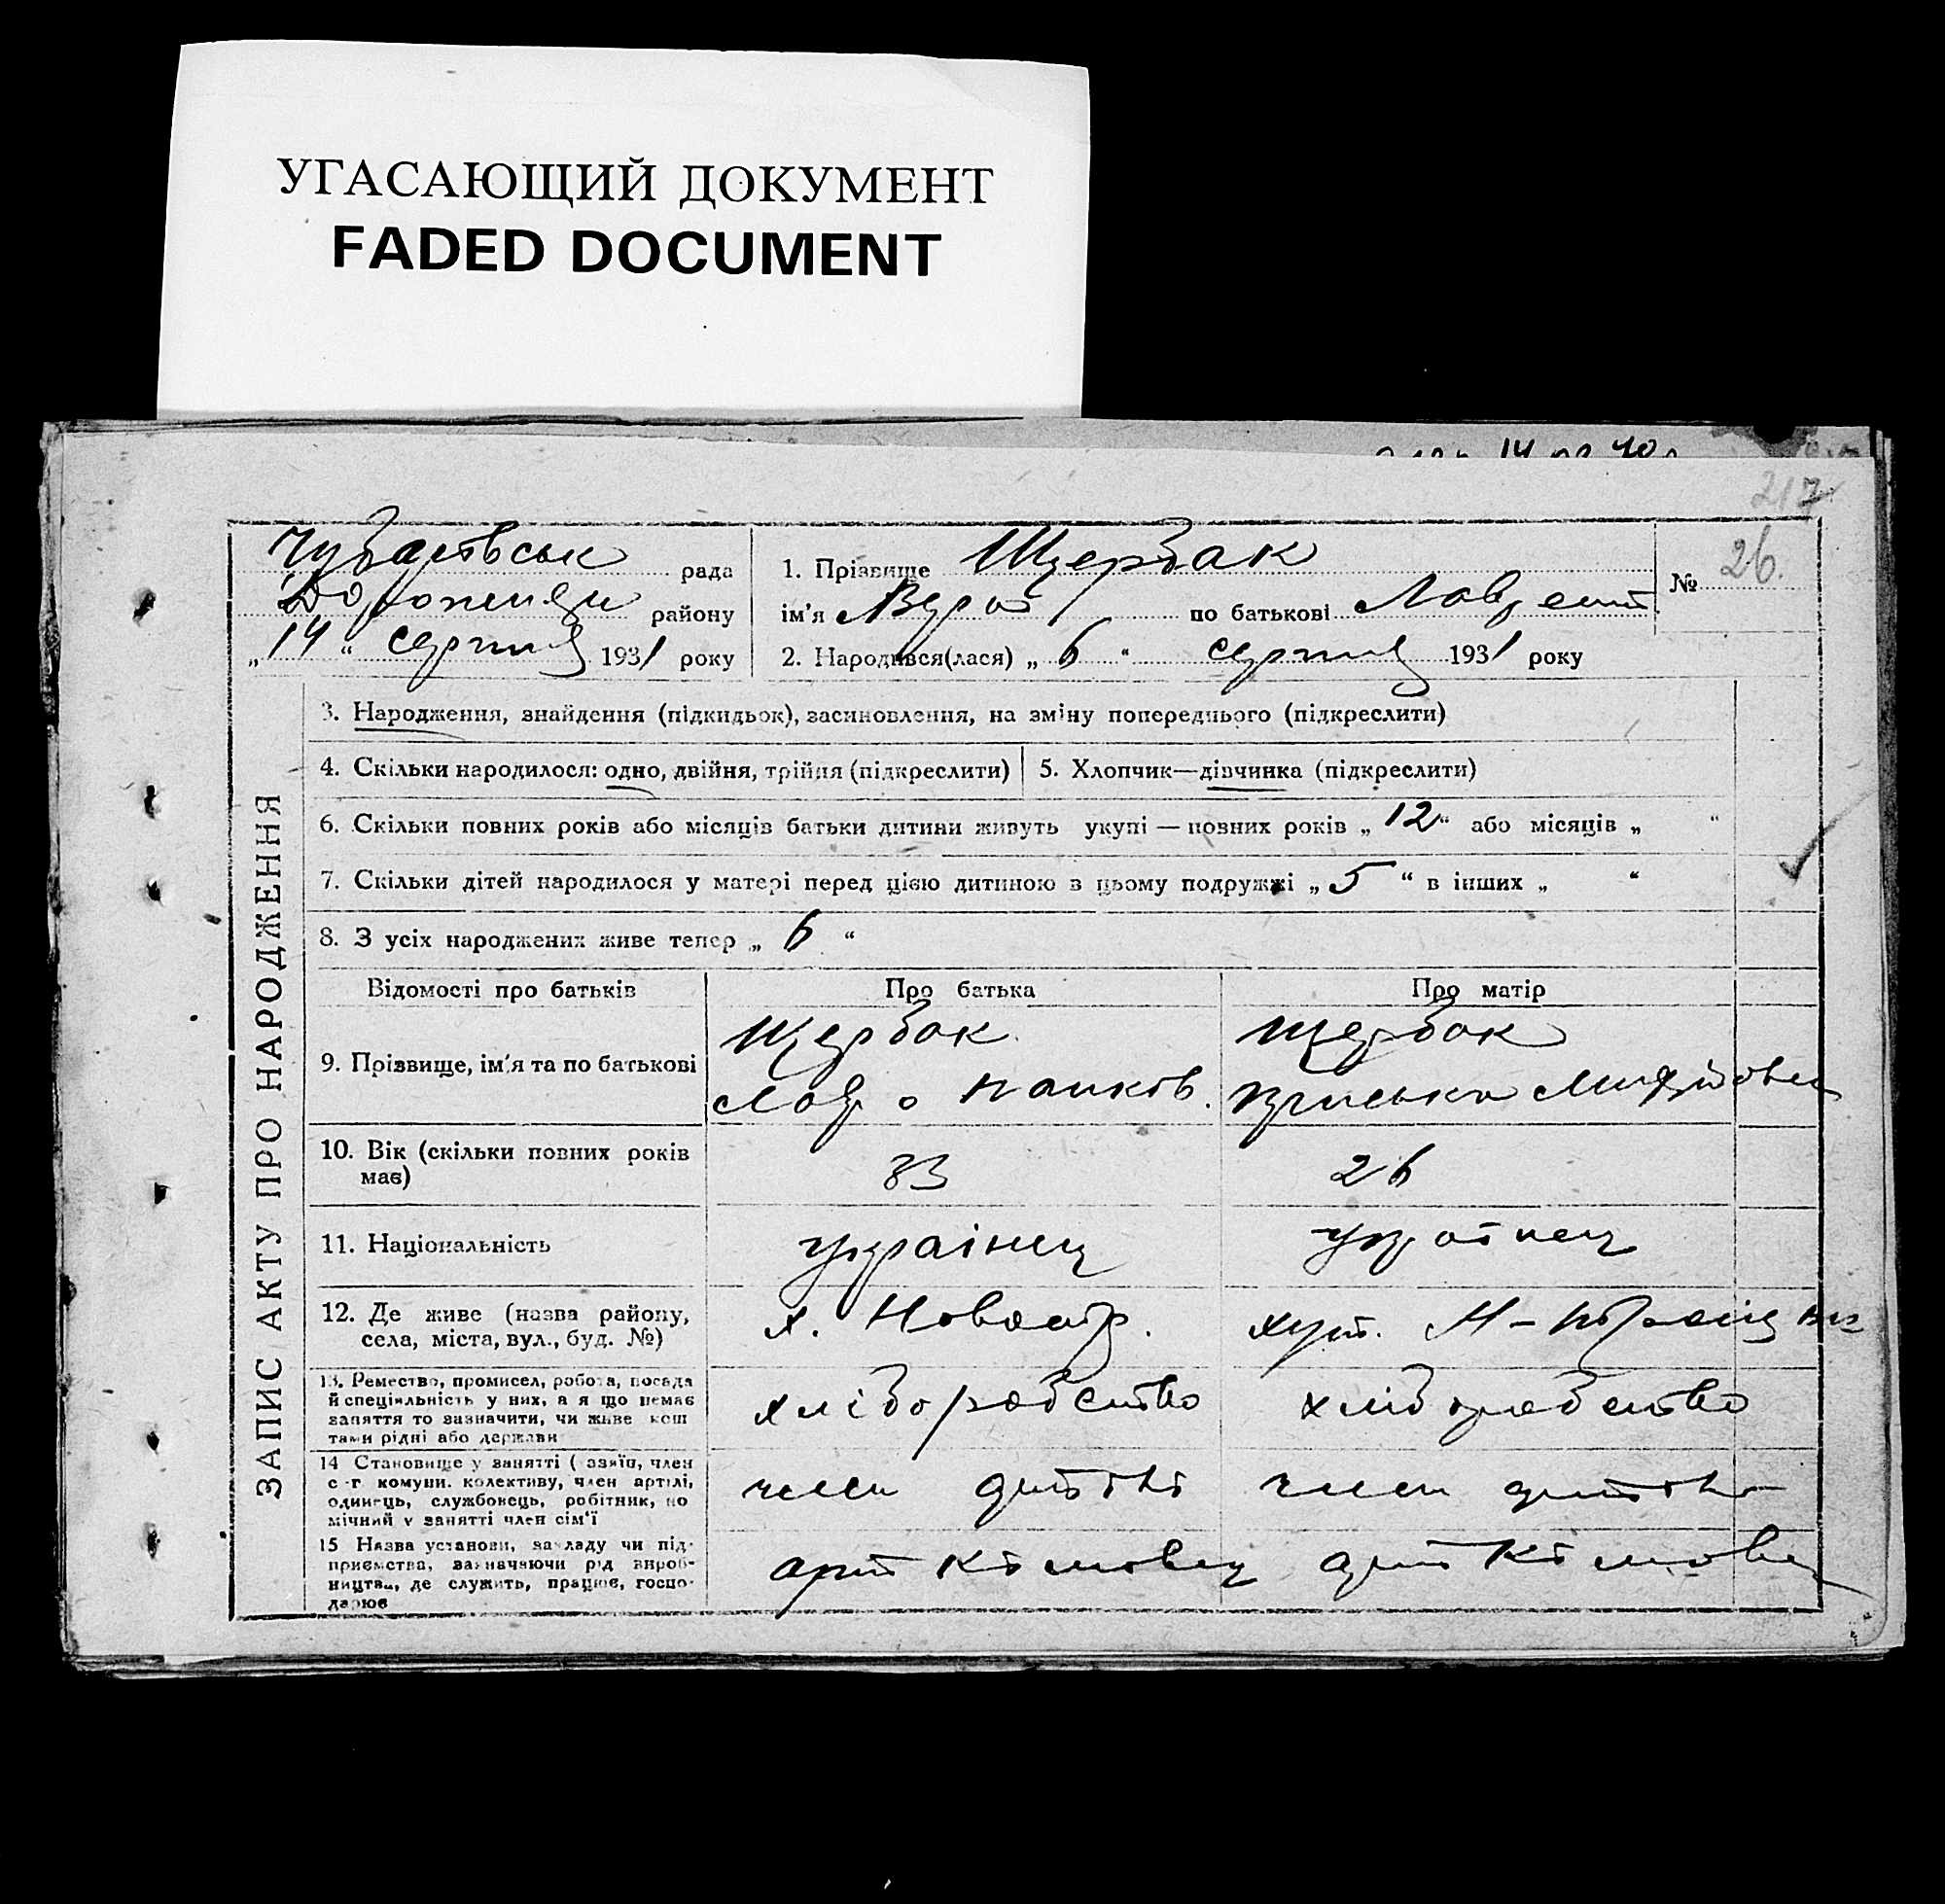 УГАСАЮЩИЙ ДОКУМЕНТ
FADED DOCUMENT
217
рада
району
„14“ серпня 1931 року
1. Прізвище Щербак
ім'я Віра по батькові Лаврент.
№ 26.
2. Народився(лася) „6“ серпня 1931 року
ЗАПИС АКТУ ПРО НАРОДЖЕННЯ
3. Народження, знайдення (підкидьок), засиновлення, на зміну попереднього (підкреслити)
4. Скільки народилося: одно, двійня, трійня (підкреслити)
5. Хлопчик—дівчинка (підкреслити)
6. Скільки повних років або місяців батьки дитини живуть укупі — повних років „12“ або місяців „ “
7. Скільки дітей народилося у матері перед цією дитиною в цьому подружжі „5“ в інших „ “
8. З усіх народжених живе тепер „6“
Відомості про батьків
Про батька
Про матір
9. Прізвище, ім'я та по батькові
Щербак
Щербак
10. Вік (скільки повних років
має)
33
26
11. Національність
українец
українец
12. Де живе (назва району,
села, міста, вул., буд. №)
х.
хут.
13. Ремество, промисел, робота, посада
й спеціяльність у них, а я що немає
заняття то зазначити, чи живе кош
тами рідні або держави
хліборобство
хліборобство
14 Становище у занятті (хазяїн, член
с-г комуни. колективу, член артілі,
одинець, службовець, робітник, по
мічний у занятті член сім'ї
член артілі
член артілі
15 Назва установи, закладу чи під-
приємства, зазначаючи рід вироб-
ництва, де служить, працює, госпо-
дарює
арт
арт